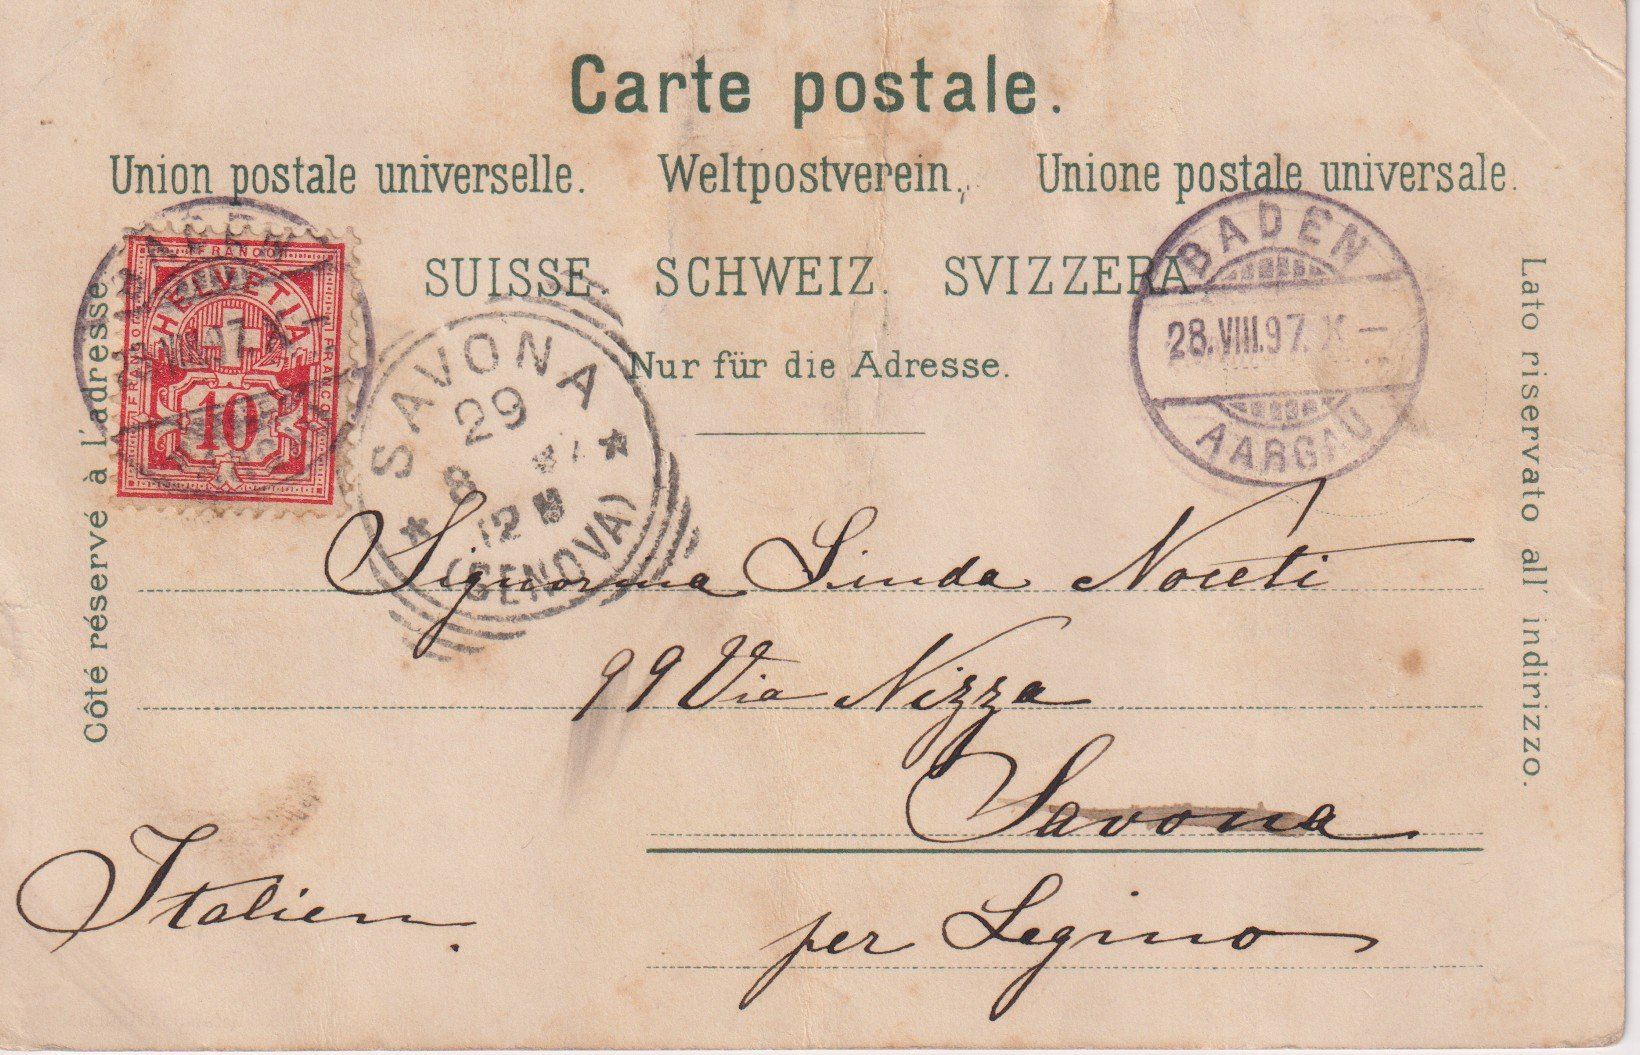 Carte postale.
Union postale universelle. Weltpostverein. Unione postale universale.
SUISSE. SCHWEIZ. SVIZZERA
Nur für die Adresse.
Côté réservé à l'adresse.
Lato riservato all' indirizzo.
FRANCO
HELVETIA
FRANCO
FRANCO
10
BADEN
97
SAVONA
29
8 97
12 M
(GENOVA)
BADEN
28.VIII.97. X–
AARGAU
Signorina Linda Noceti
99 Via Nizza
Savona
per Legino
Italien.